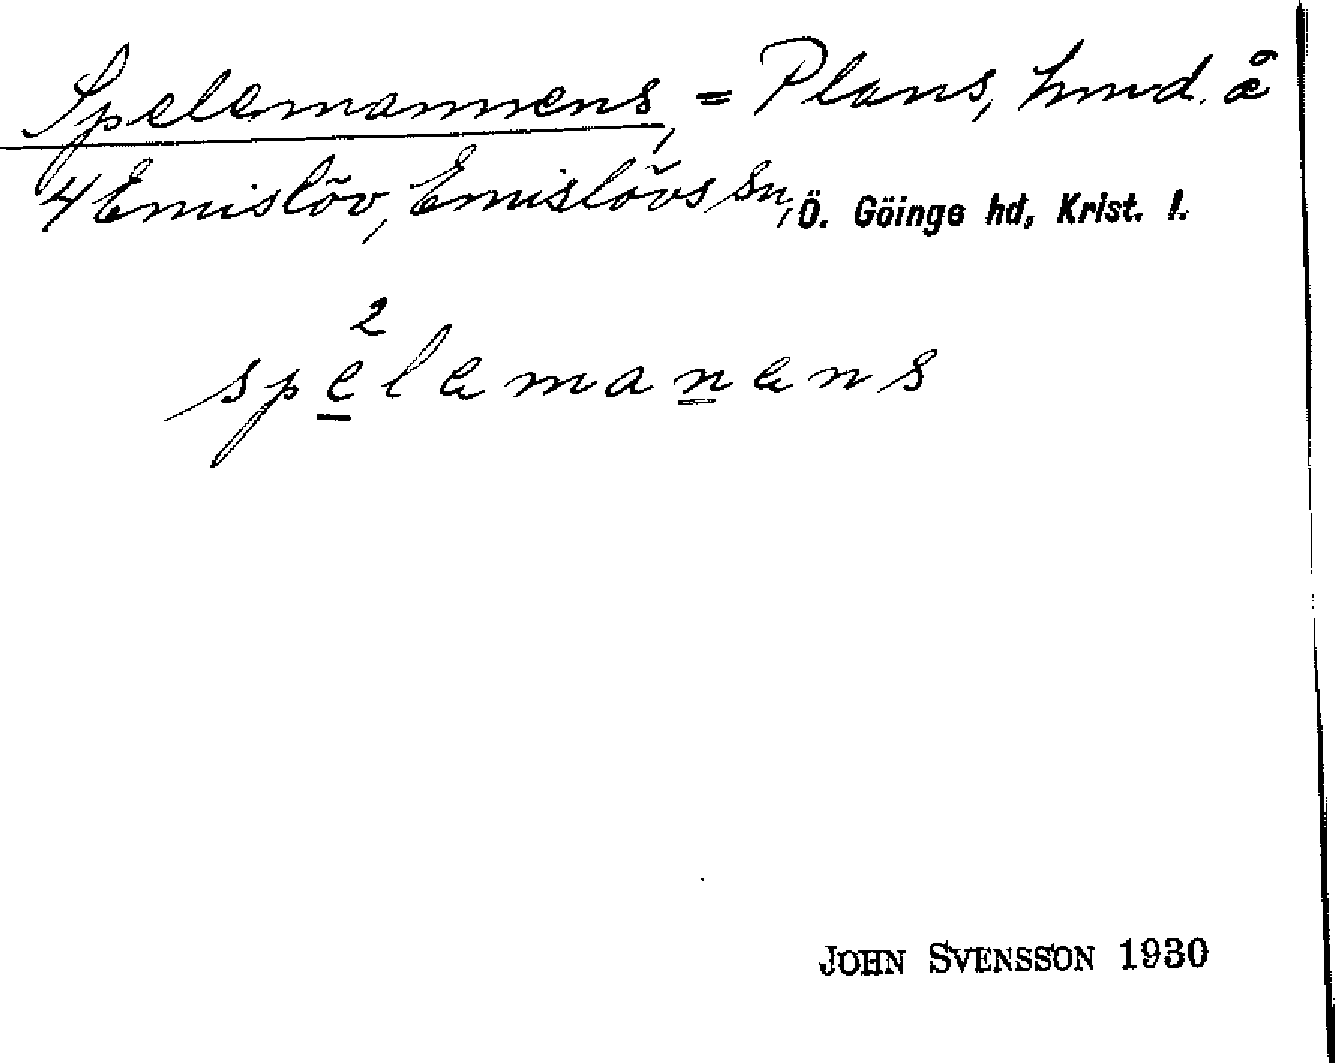 Spelemannens, = Plans, hmd. å
4 Emislöv, Emislövs sn, Ö. Göinge hd, Krist. l.
spe²lemanens
JOHN SVENSSON 1930